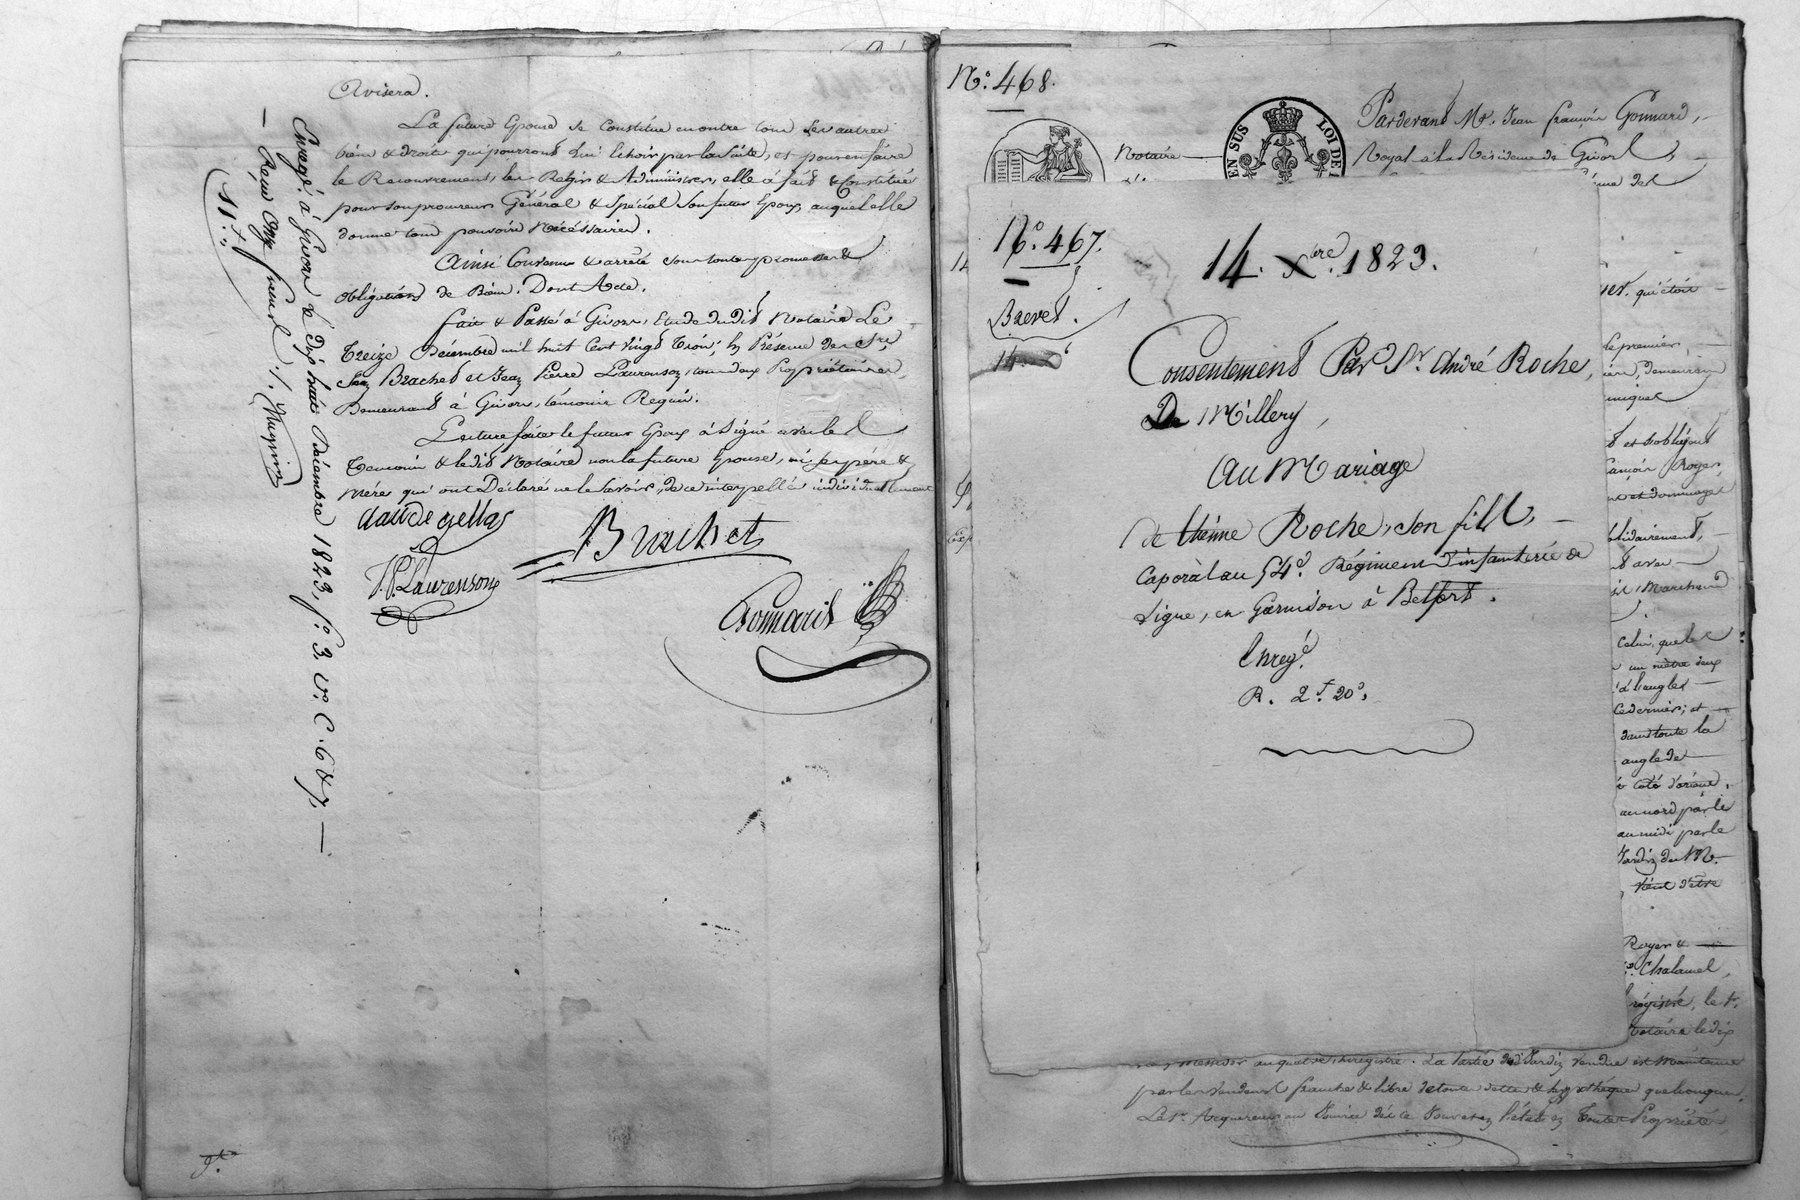 Avisera.
La future Epouse se Constitue en outre tous les autres
biens & droits qui pourront lui échoir par la suite, et pour en faire
le Recouvrement, les Régir & Administrer, elle a fait & Constitué
pour son procureur Général & Spécial son futur Epoux, auquel elle
donne tous pouvoirs Nécéssaires.
Ainsi Convenu & arrêté sous toutes promesses &
obligations de Biens. Dont Acte.
Fait & Passé à Givors, Etude dudit Notaire Le
Treize Décembre mil huit Cent vingt trois; En Présence des Srs
Jean Brachet et Jean Pierre Laurenson, tous deux Propriétaires,
Demeurant à Givors, témoins Requis.
Lecture faite le futur Epoux a signé avec les
Témoins & ledit Notaire non la future Epouse, ni ses père &
mère qui ont Déclaré ne le Savoir, de ce interpellés individuellement
Claude gellas
Brachet
J. P. Laurenson
Gonnard
Enregé à Givors le dix huit Décembre 1823, fo. 3. vo. C. 6 & 7.
Reçu Onze francs
11 f
No. 468.
Pardevant Me. Jean françois Gonnard,
Notaire Royal à la Résidence de Givors,
EN SUS
LOI DE
No. 467.
Brevet.
14. Xbre. 1823.
Consentement Par Sr. André Roche,
De Millery,
Au Mariage
de Etienne Roche, son fils,
Caporal au 54e. Régiment d'infanterie de
Ligne, en Garnison à Belfort.
Enregé.
R. 2f. 20c.
qui étoit
le premier,
demeurant
et s'obligeant
françois Royer,
et dommages
solidairement,
avec
Marchand
Celui, que les
un mètre deux
d'angles
ce dernier; et
dans toute la
angle de
côté d'orient,
au nord par le
au midi par le
Jardin du M.
vient d'être
Royer &
Chalamel,
régistré, le 4.
Notaire le dix
messidor an quatre, enregistré. La Partie de Jardin vendue est Maintenue
par les vendeurs franche & libre de toutes dettes & hypothèques quelconques.
Le Sr. Acquereur au Domicile
toute Propriété